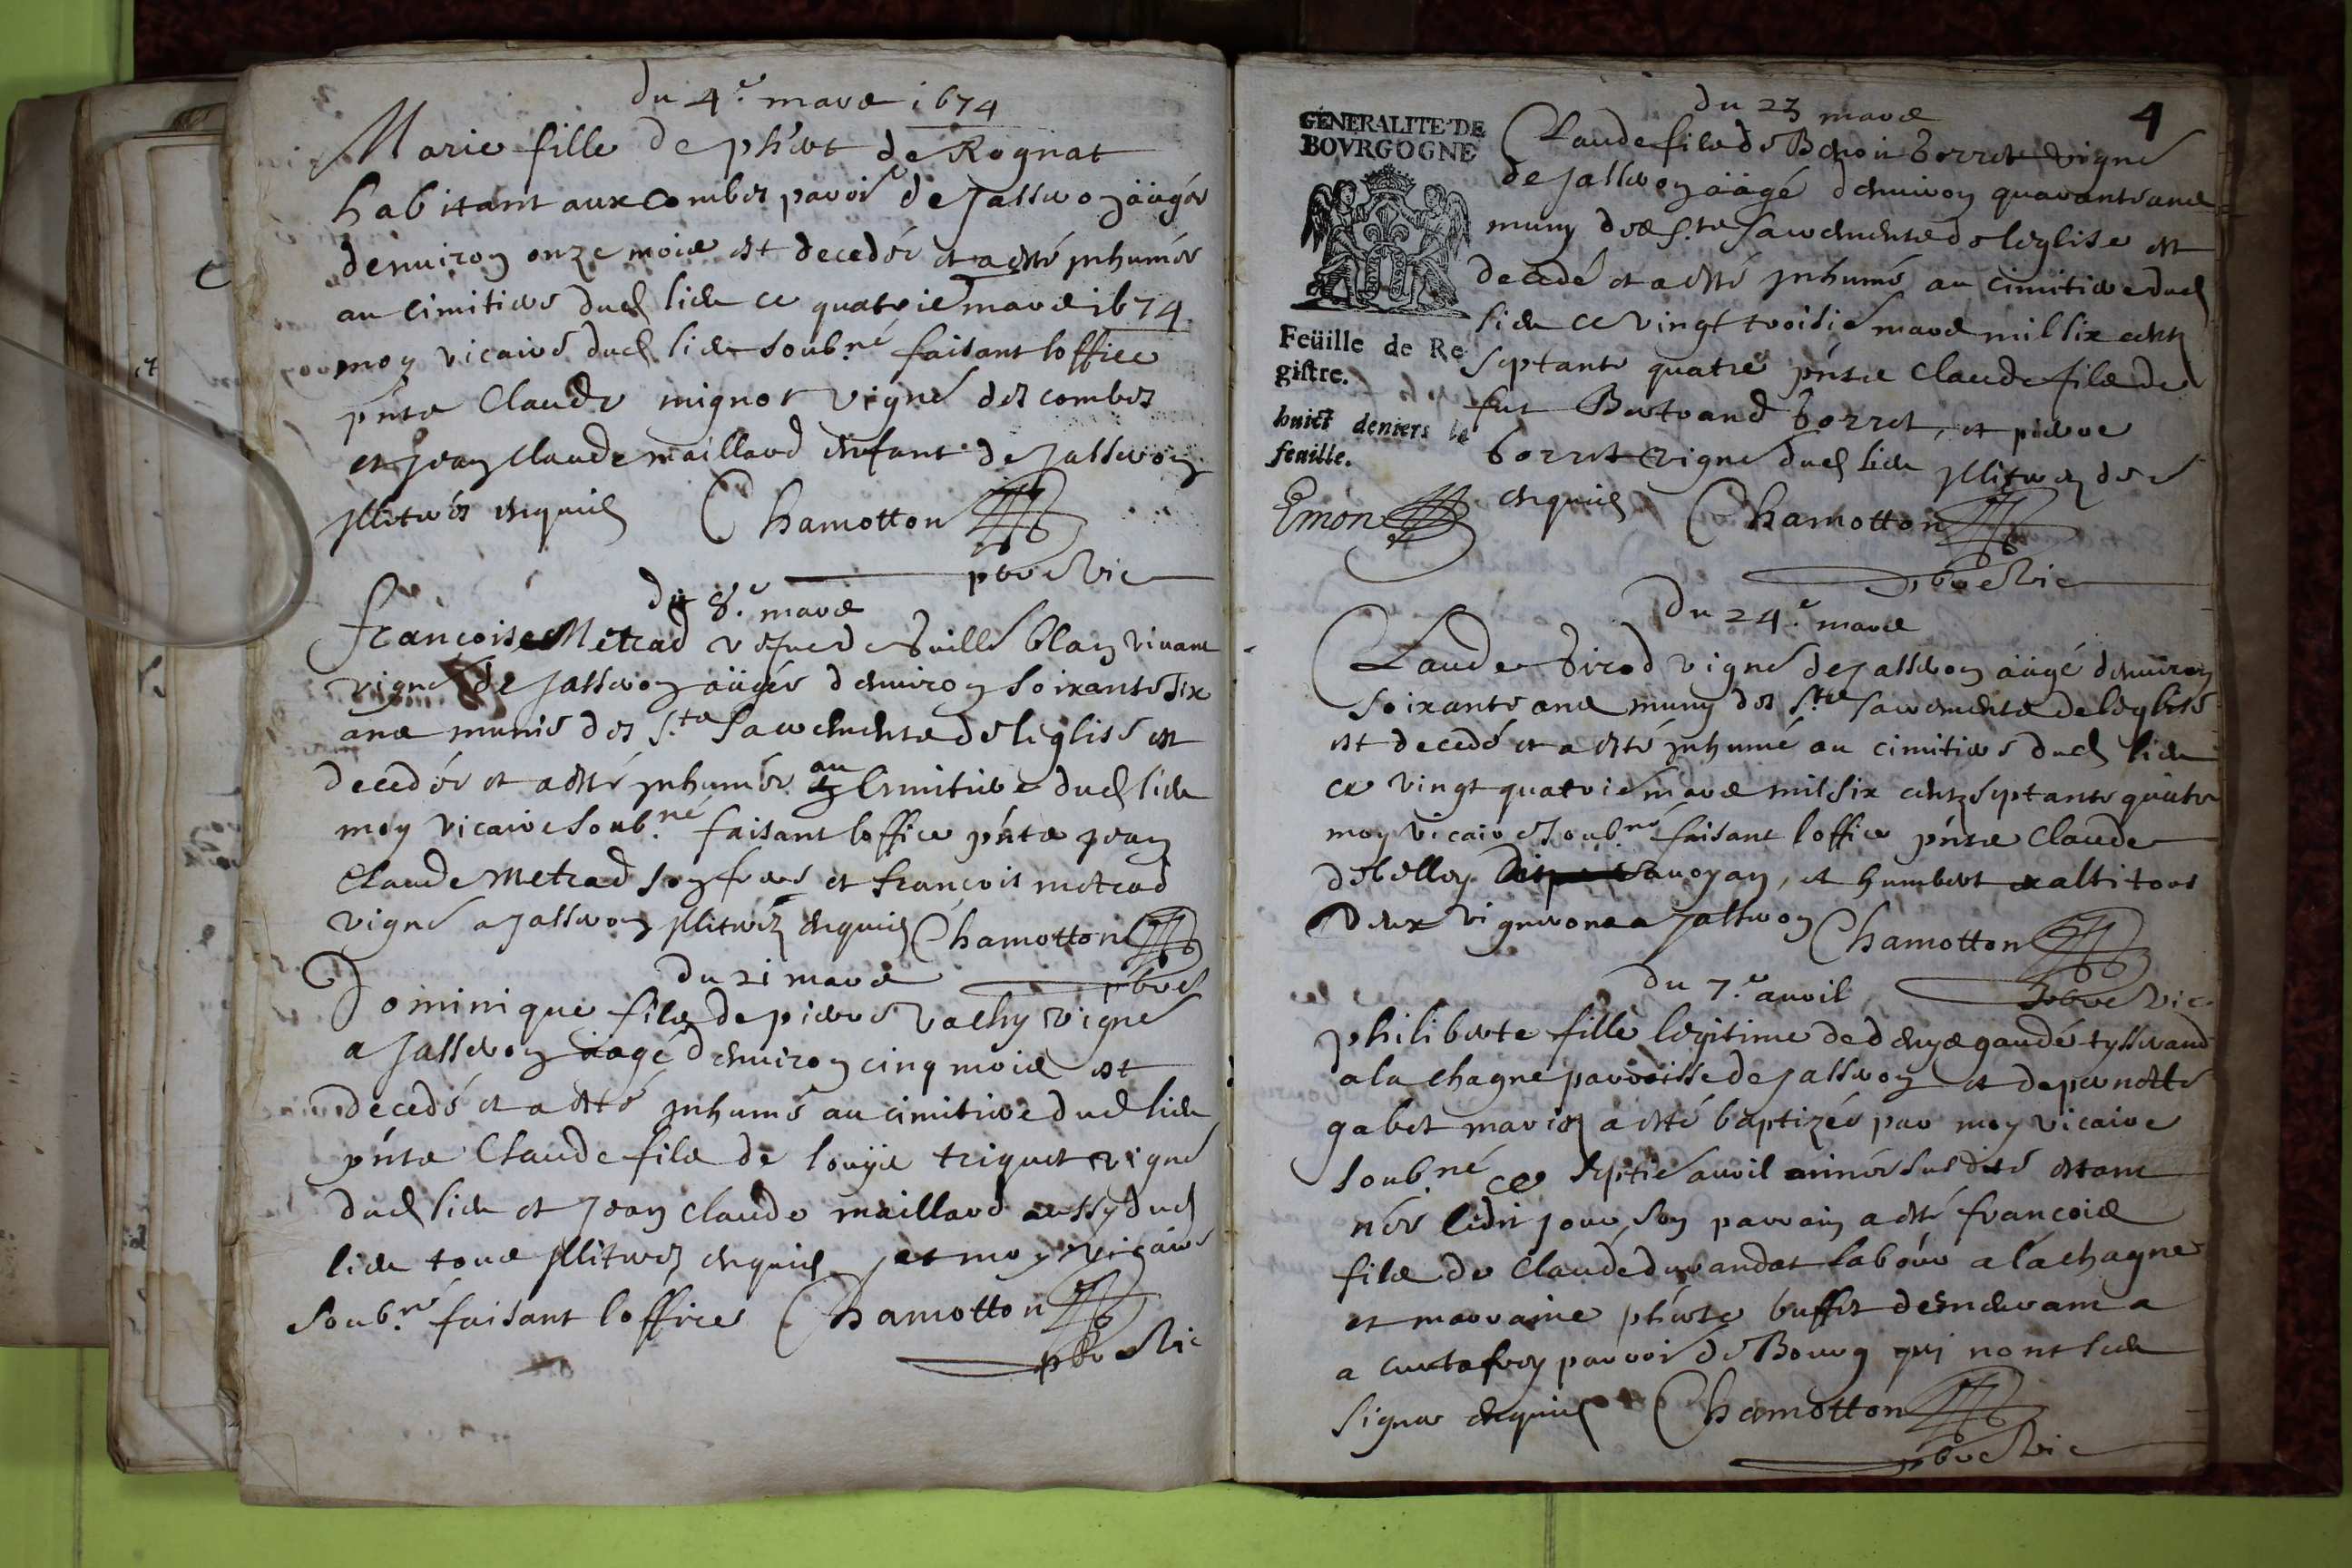 du 4.e mars 1674
Marie fille de phert de Rognat
habitant aux Combes parois de Jasseron aagée
denuiron onze mois est decedée et a esté inhumée
au cimitiere dud lieu ce quatrie mars 1674
moy vicaire dud lieu soub.né faisant loffice
pñts Claude mignot vigne des combes
et Jean Claude maillard enfant de Jasseron
illiterés enquis Chamotton
pbre vic
du 8.e mars
francoise Metrad vefue de Guille blan viuant
vigne de Jasseron aagée denuiron soixante six
ans munie des s.ts sacrements de leglise est
decedée et a esté inhumée au Cimitiere dud lieu
moy vicaire soub.né faisant loffice pñts Jean
Claude Metrad son frere et francois metrad
vigne a Jasseron illiterez enquis Chamotton
pbre
du 21 mars
Dominique fils de pierre vachy vigne
a Jasseron aagé denuiron cinq mois est
decedé et a esté inhumé au cimitiere dud lieu
pñts Claude fils de louys triquet vigne
dud lieu et Jean Claude maillard aussy dud
lieu tous illiterez enquis et moy vicaire
soub.né faisant loffice Chamotton
pbre vic
4
GENERALITE DE
BOVRGOGNE
Feüille de Re
gistre.
huict deniers la
feuille.
Emon
du 23 mars
Claude fils de Benoit borret vigne
de Jasseron aagé denuiron quarante ans
muny des s.ts sacrements de leglise est
decedé et a esté inhumé au cimitiere dud
lieu ce vingt troisie mars mil six cent
septante quatre pñts Claude fils de
fut Bertrand borret, et pierre
borret vigne dud lieu illiterez
enquis Chamotton
pbre vic
du 24.e mars
Claude birod vigne de Jasseron aagé denuiron
soixante ans muny des s.ts sacrements de leglise
est decedé et a esté inhumé au cimitiere dud lieu
ce vingt quatrie mars mil six cent septante quatre
moy vicaire soub.né faisant loffice pñts Claude
debelley sauoyan, et humbert calti tous
deux vignerons a Jasseron Chamotton
pbre vic
du 7.e auril
philiberte fille legitime de denys gaudé tysserand
a la chagne parroisse de Jasseron et de pernette
gabet mariez a esté baptizée par moy vicaire
soub.né ce septie auril année susdite estant
née ledit jour, son parrain a esté francois
fils de Claude durandat labour a la chagne
et marraine pherte buffet demeurant a
a curtafrey parrois de Bourg qui nont sceu
signer enquis Chamotton
pbre vic